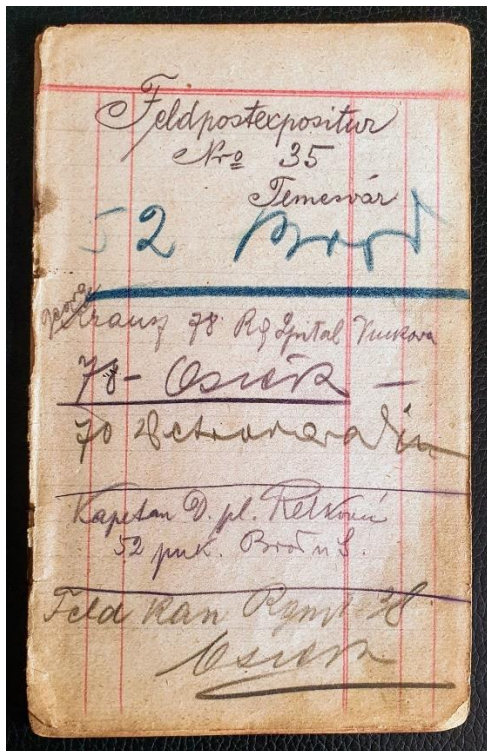 Feldpostexpositur
Nro 35
Temesvár
52 Brod
Krausz 78 Rg Spital Vuckova
78 - Osiek -
70
Kapetan D. pl. Relković
52 puk. Brod n S.
Feld Kan Rgmt 38
Osiek